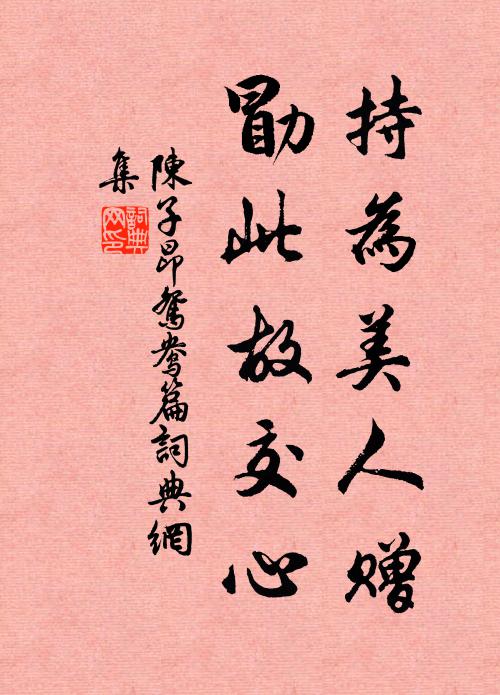 持為美人贈
勖此故交心
陳子昂鴛鴦篇詞典網
集
詞典网印